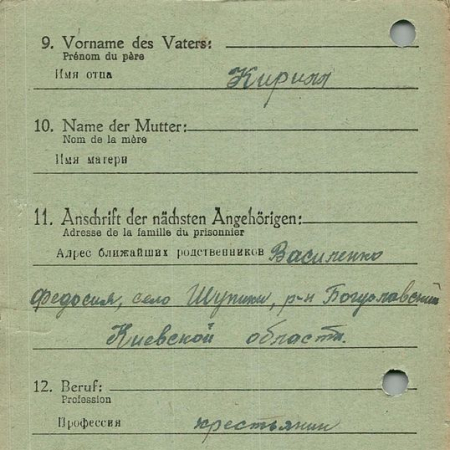 9. Vorname des Vaters:
Prénom du père
Имя отца Кирилл
10. Name der Mutter:
Nom de la mère
Имя матери
11. Anschrift der nächsten Angehörigen:
Adresse de la famille du prisonnier
Адрес ближайших родственников Василенко
Федосия, село Шупики, р-н Богуславский
Киевской области.
12. Beruf:
Profession
Профессия крестьянин